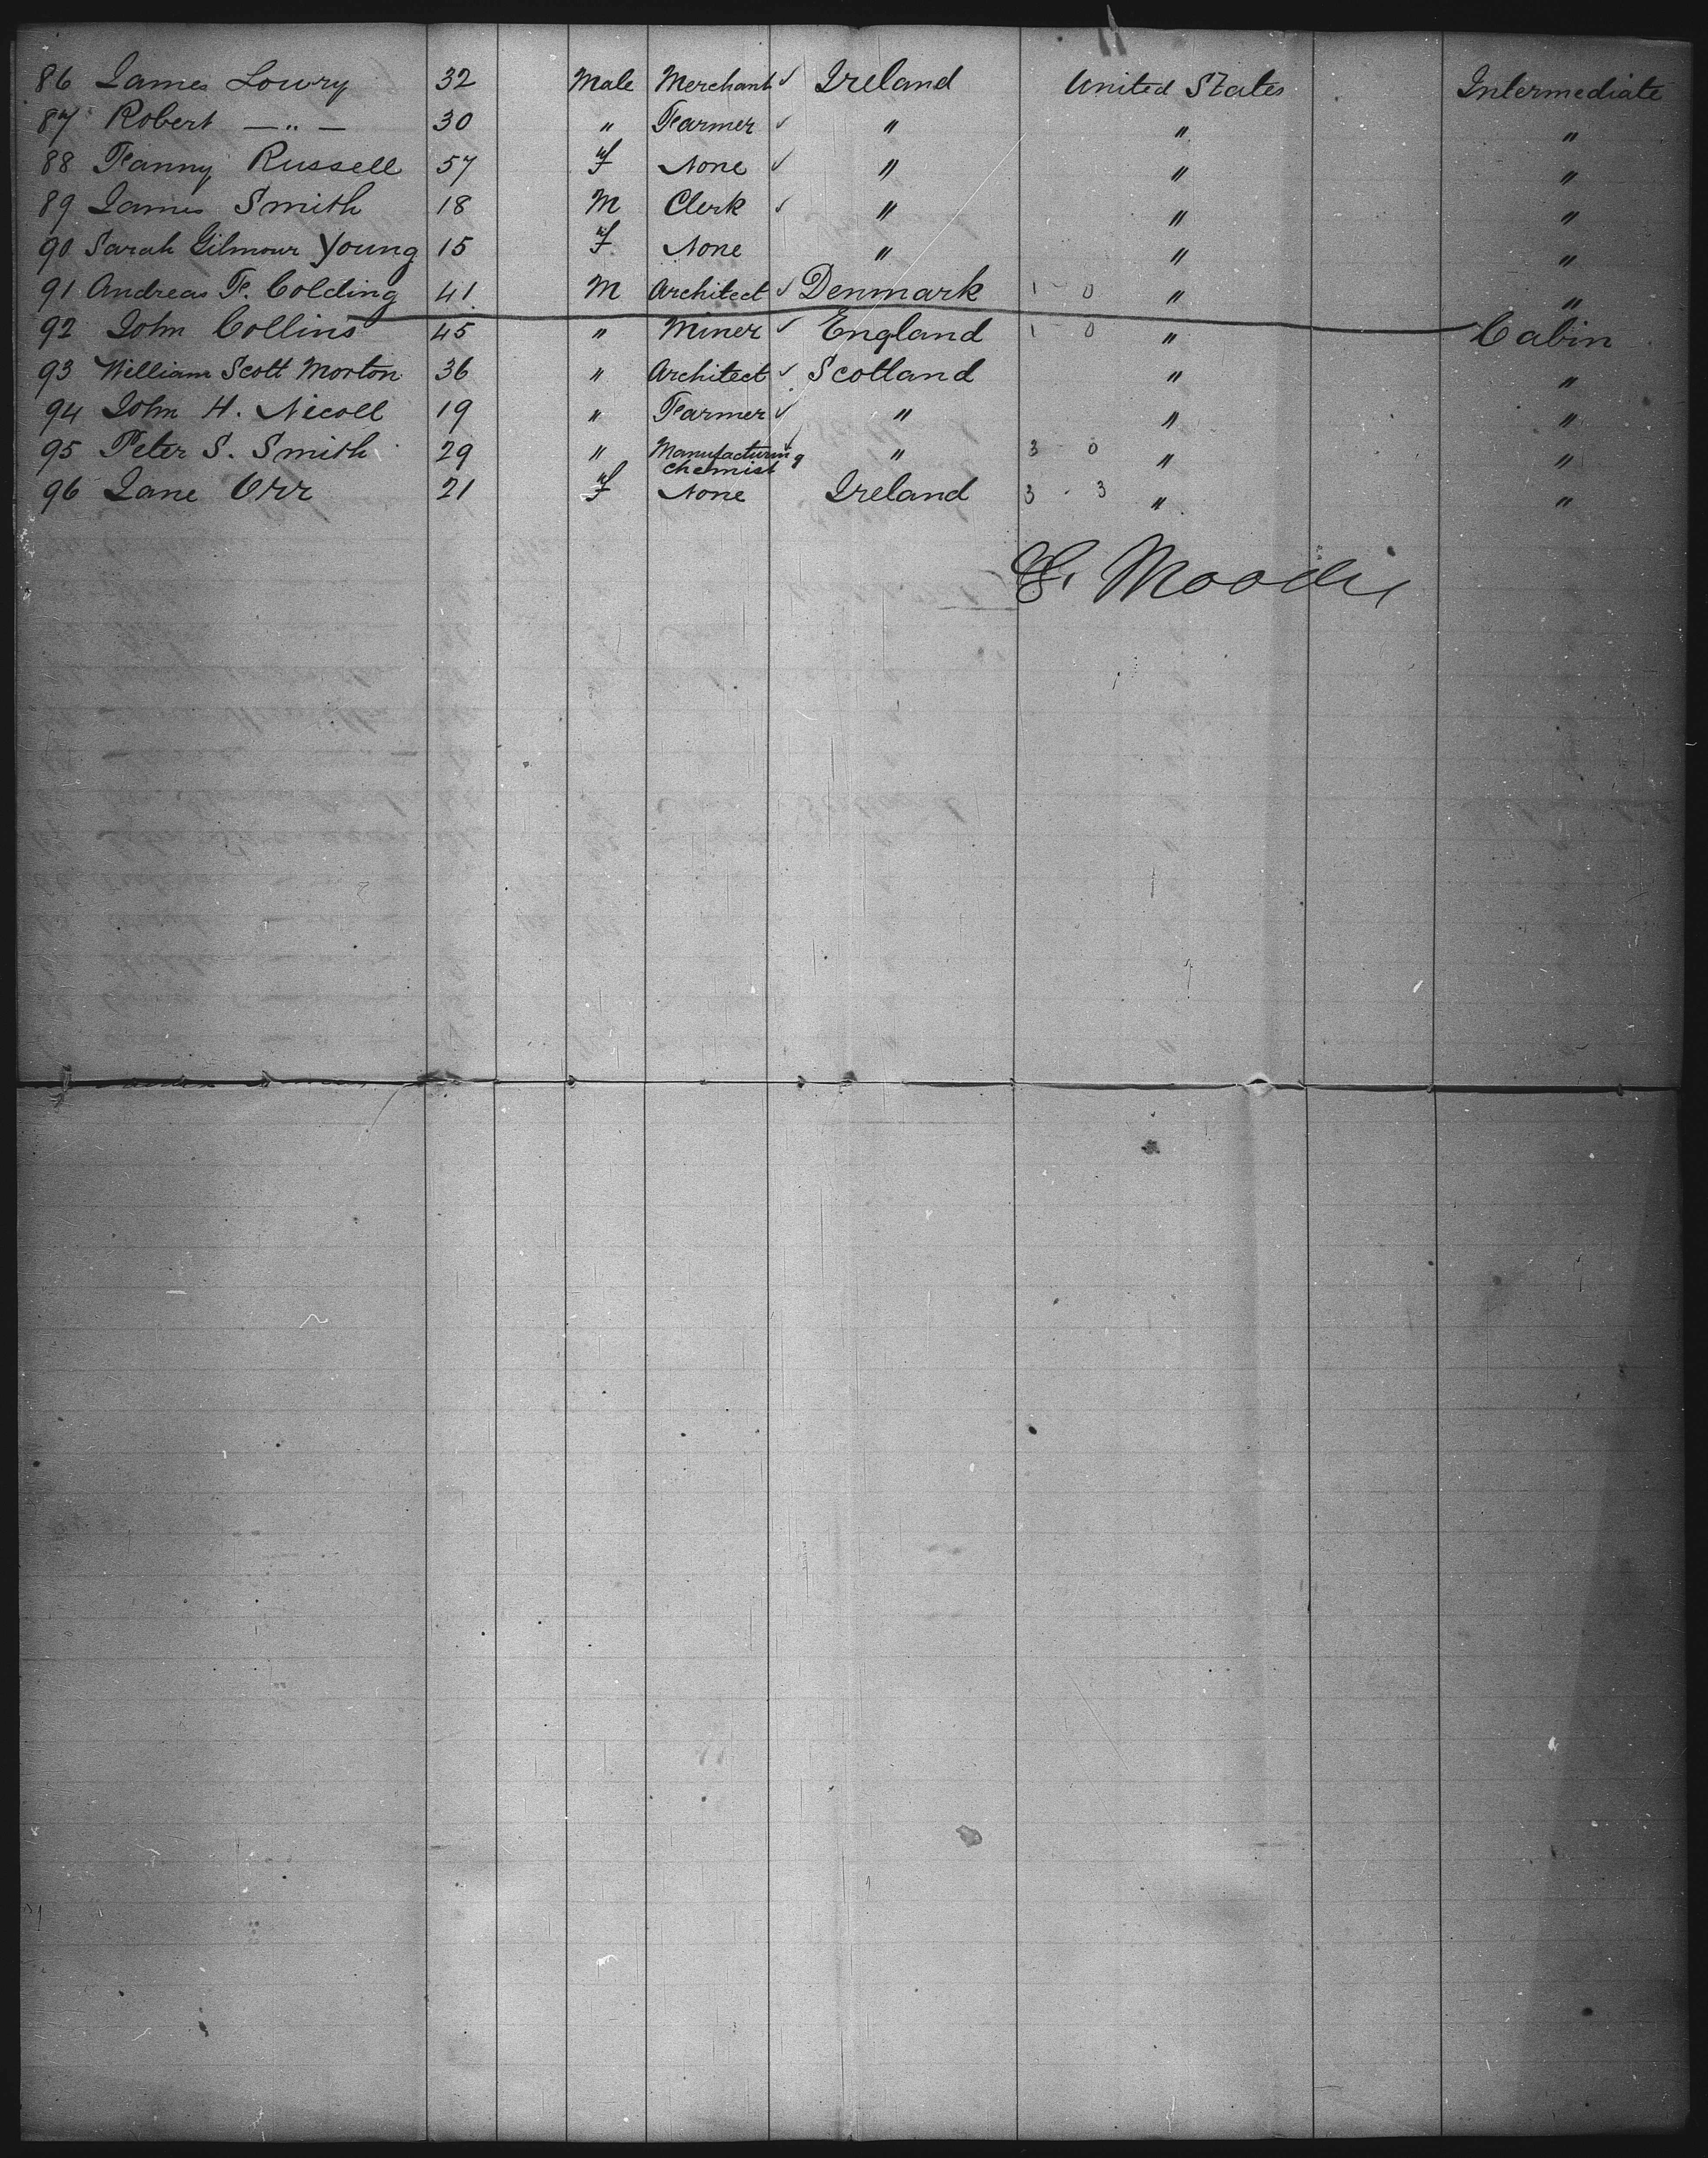 86 James Lowry 32 Male Merchant ✓ Ireland United States Intermediate
87 Robert — " — 30 " Farmer ✓ " " "
88 Fanny Russell 57 F None ✓ " " "
89 James Smith 18 M Clerk ✓ " " "
90 Sarah Gilmour Young 15 F None " " "
91 Andreas F. Colding 41 M Architect ✓ Denmark 1 - 0 " "
92 John Collins 45 " Miner ✓ England 1 - 0 " Cabin
93 William Scott Morton 36 " Architect ✓ Scotland " "
94 John H. Nicoll 19 " Farmer ✓ " " "
95 Peter S. Smith 29 " Manufacturing chemist ✓ " 3 0 " "
96 Jane Orr 21 F None Ireland 3 - 3 " "
Moodie